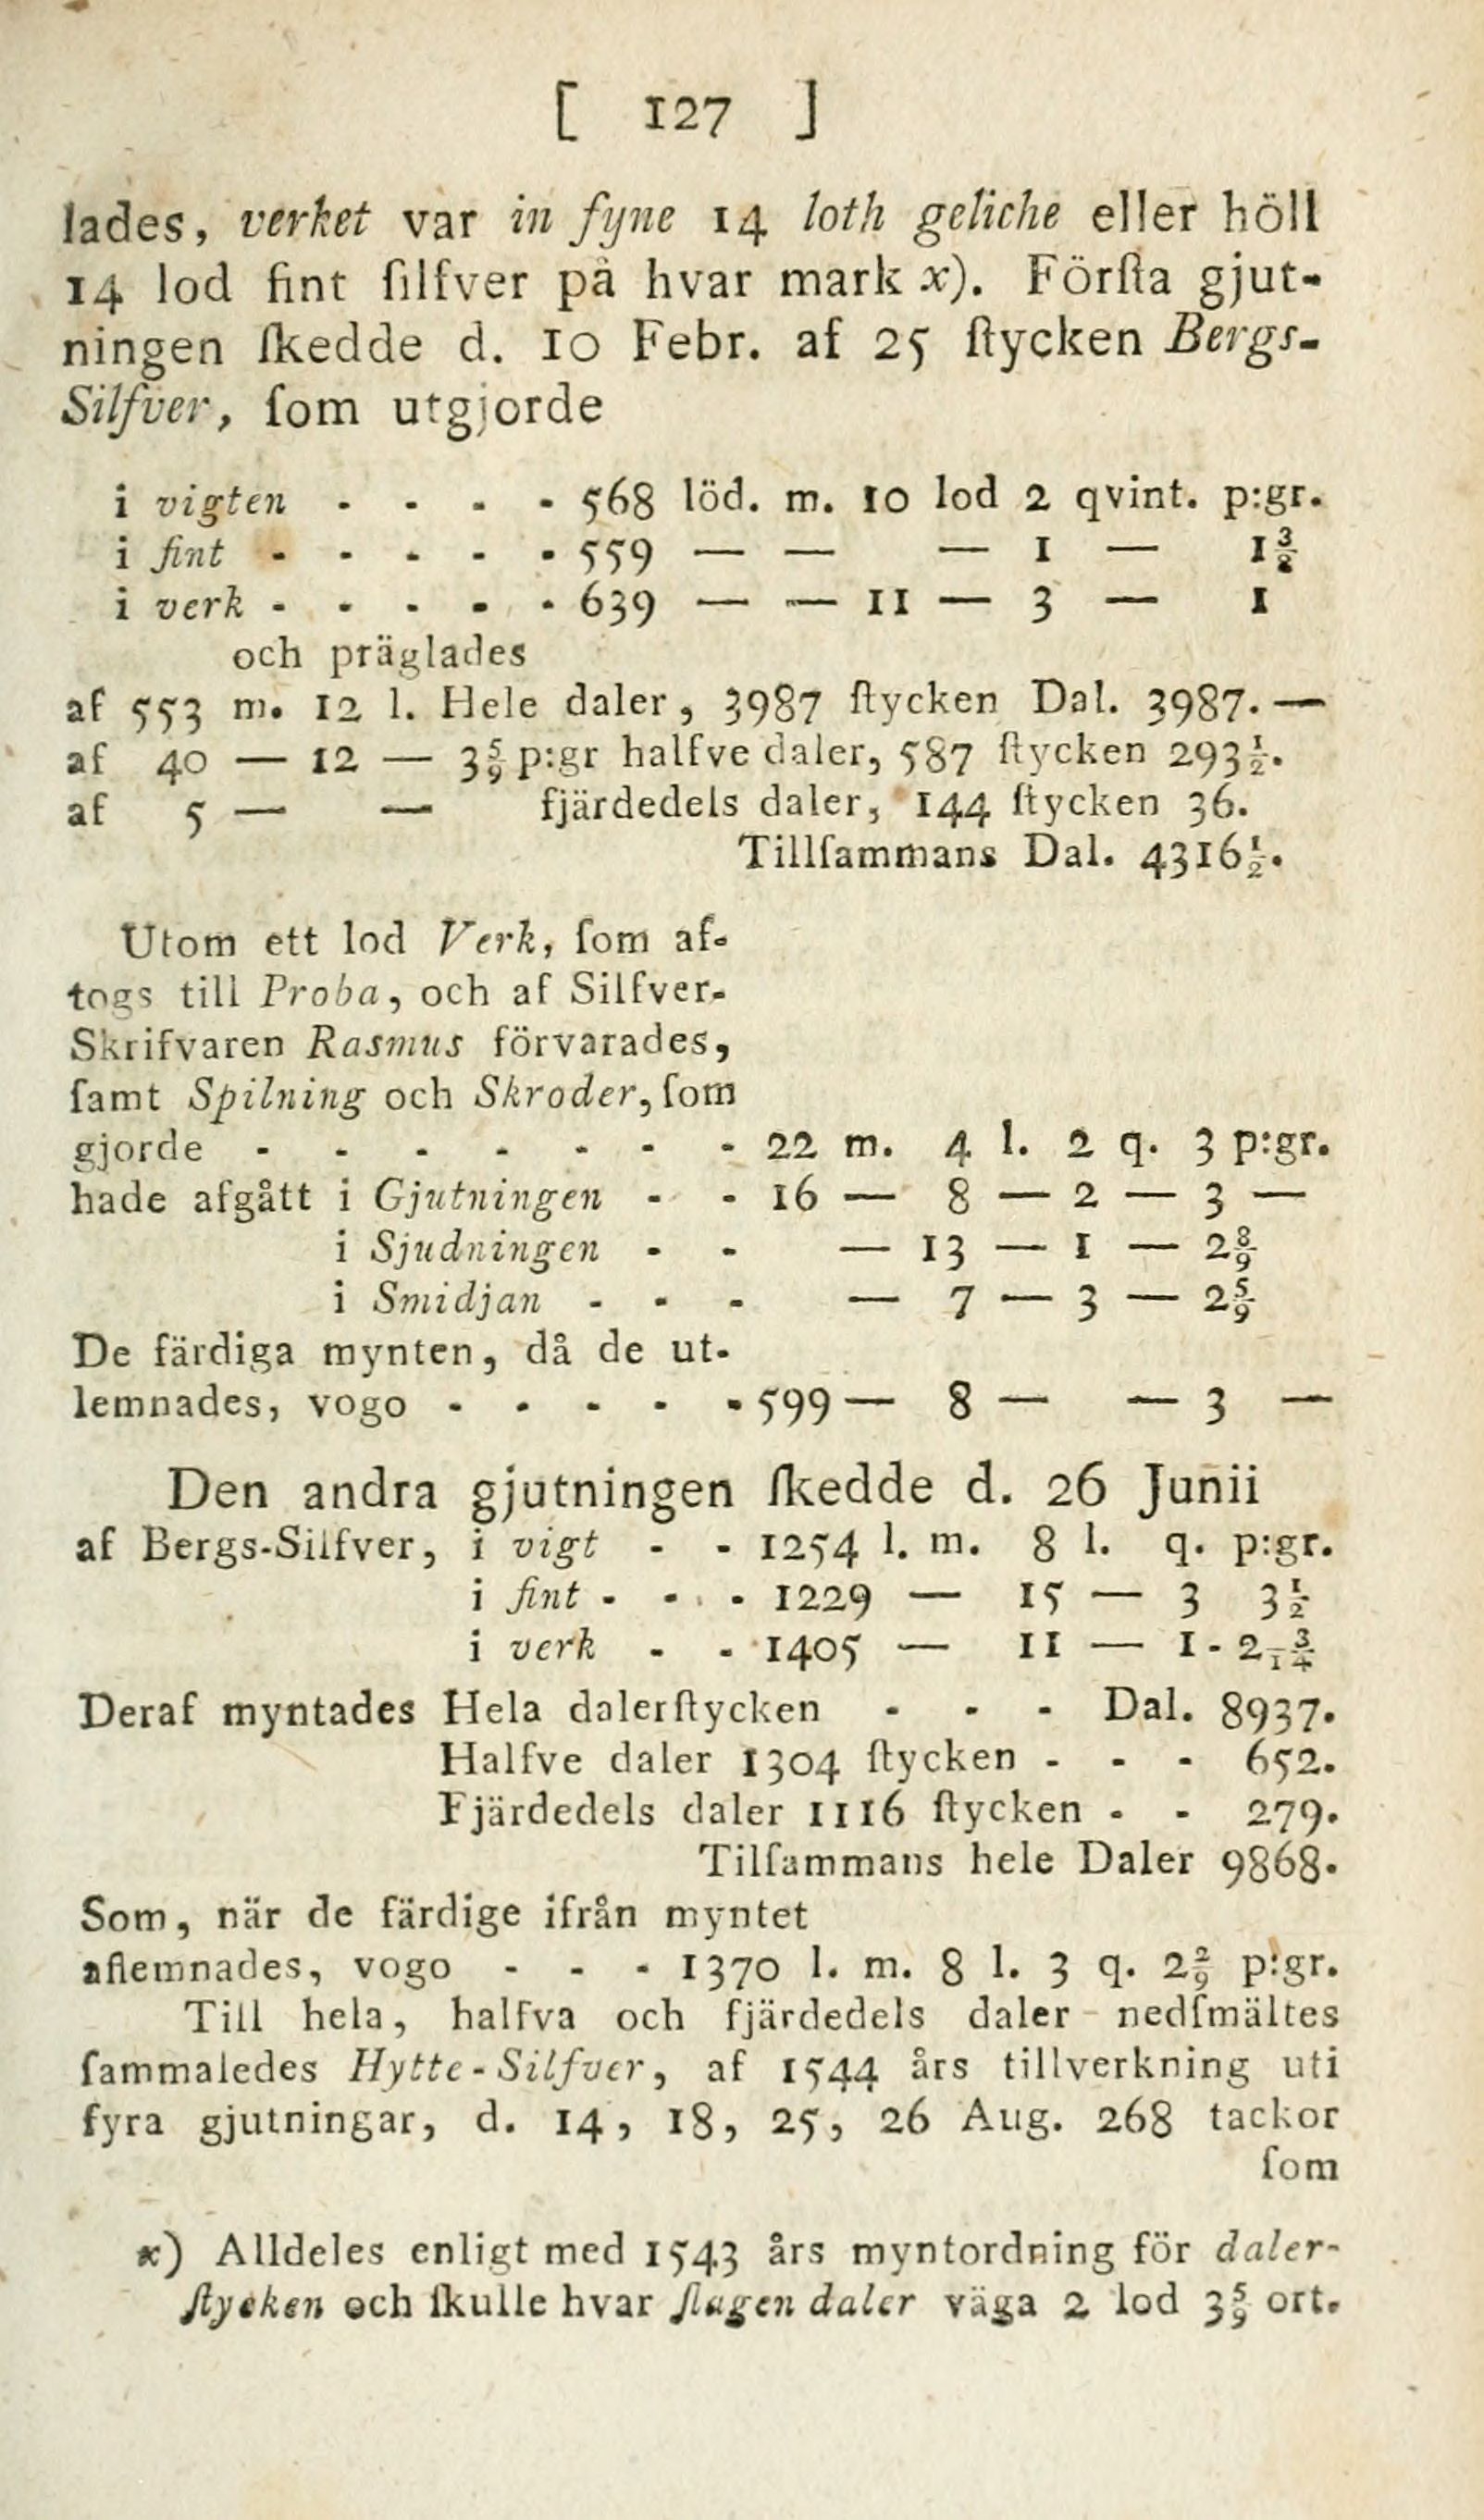 [ 127 ]
lades, verket var in fyne 14 loth geliche eller höll
14 lod fint ſilfver på hvar mark x). Förſta gjut-
ningen ſkedde d. 10 Febr. af 25 ſtycken Bergs-
Silfver, ſom utgjorde
i vigten - - - - 568 löd. m. 10 lod 2 qvint. p:gr.
i fint - - - - - 559 — — — 1 — 1 3/8
i verk - - - - - 639 — — 11 — 3 — 1
och präglades
af 553 m. 12 l. Hele daler, 3987 ſtycken Dal. 3987. —
af 40 — 12 — 3 5/9 p:gr halfve daler, 587 ſtycken 293 1/2.
af 5 — — fjärdedels daler, 144 ſtycken 36.
Tillſammans Dal. 4316 1/2.
Utom ett lod Verk, ſom af-
togs till Proba, och af Silfver-
Skrifvaren Rasmus förvarades,
ſamt Spilning och Skroder, ſom
gjorde - - - - - - - 22 m. 4 l. 2 q. 3 p:gr.
hade afgått i Gjutningen - - 16 — 8 — 2 — 3 —
i Sjudningen - - — 13 — 1 — 2 8/9
i Smidjan - - - — 7 — 3 — 2 5/9
De färdiga mynten, då de ut-
lemnades, vogo - - - - - 599 — 8 — — 3 —
Den andra gjutningen ſkedde d. 26 Junii
af Bergs-Silfver, i vigt - - 1254 l. m. 8 l. q. p:gr.
i fint - - - 1229 — 15 — 3 3 1/2
i verk - - 1405 — 11 — 1 - 2
Deraf myntades Hela dalerſtycken - - - Dal. 8937.
Halfve daler 1304 ſtycken - - - 652.
Fjärdedels daler 1116 ſtycken - - 279.
Tilſammans hele Daler 9868.
Som, när de färdige ifrån myntet
aflemnades, vogo - - - 1370 l. m. 8 l. 3 q. 2 2/9 p:gr.
Till hela, halfva och fjärdedels daler nedſmältes
ſammaledes Hytte-Silfver, af 1544 års tillverkning uti
fyra gjutningar, d. 14, 18, 25, 26 Aug. 268 tackor
ſom
x) Alldeles enligt med 1543 års myntordning för daler-
ſtycken och ſkulle hvar ſlagen daler väga 2 lod 3 5/9 ort.